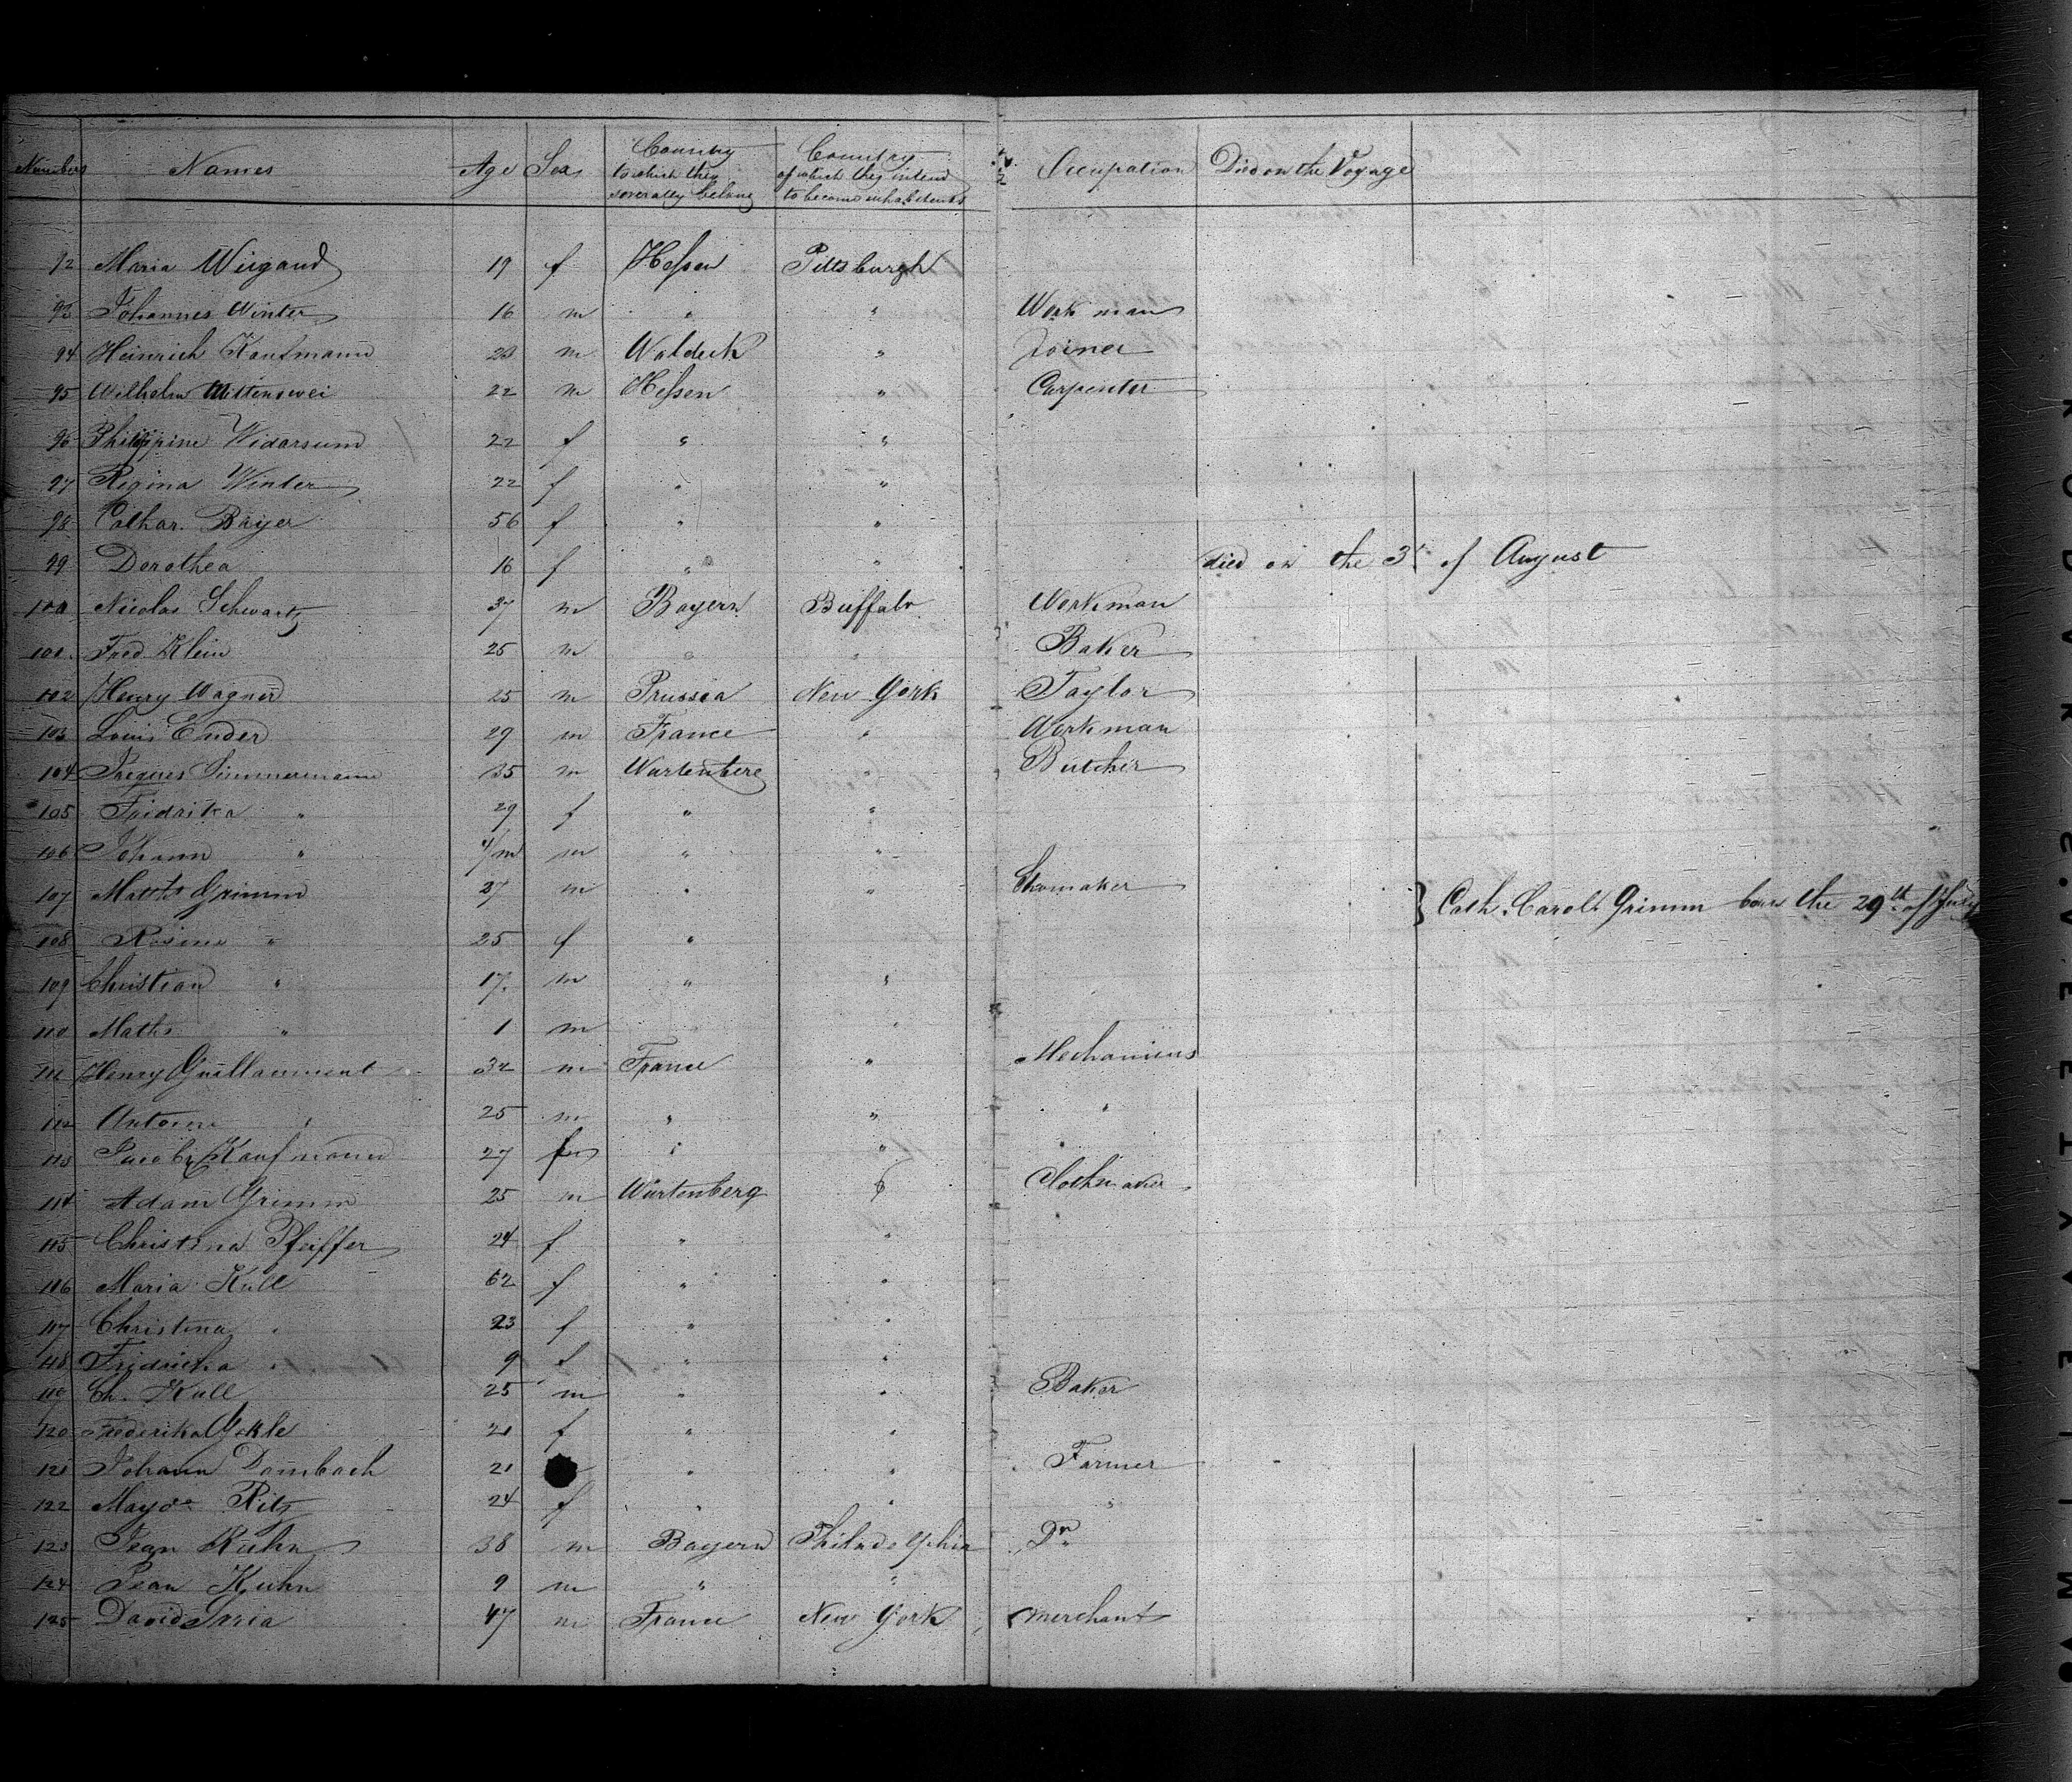 Numbers Names Age Sex Country to which they severally belong Country of which they intend to become inhabitants Occupation Died on the Voyage
92 Maria Wiegand 19 f Hessen Pittsburgh
93 Johannes Winter 16 m " " Workman
94 Heinrich Kaufmann 23 m Waldeck " Joiner
95 Wilhelm Mittenswei 22 m Hessen " Carpenter
96 Philippine Widarsum 22 f " "
97 Regina Winter 22 f " "
98 Cathar. Bayer 56 f " "
99 Dorothea 16 f " " died on the 3t of August
100 Nicolas Schwartz 37 m Bayern Buffalo Workman
101 Fred. Klein 25 m " " Baker
102 Henry Wagner 25 m Prussia New York Taylor
103 Louis Ender 29 m France " Workman
104 Jaques Simmermann 35 m Wurtenberg " Butcher
105 Fridrika " 29 f " "
106 Johann " 4/m m " "
107 Matths Grimm 27 m " " Shomaker } Cath. Carol. Grimm born the 29th of July
108 Rosine " 25 f "
109 Christian " 17. m " "
110 Maths " 1 m "
111 Henry Guillaument 32 m France " Mechanicus
112 Antoine " 25 m " " "
113 Jacob Kaufmann 27 m " "
114 Adam Grimm 25 m Würtenberg Clothmaker
115 Christina Pfeiffer 24 f " "
116 Maria Kull 62 f " "
117 Christina " 23 f " "
118 Fridricka " 9 f " "
119 Ch. Kull 25 m " " Baker
120 Frederika Gekle 21 f " "
121 Johann Dambach 21 " " Farmer
122 Magda Ritz 24 f " " "
123 Jean Kuhn 38 m Bayern Philadelphia Do
124 Jean Kuhn 9 m " "
125 David 47 m France New York merchant